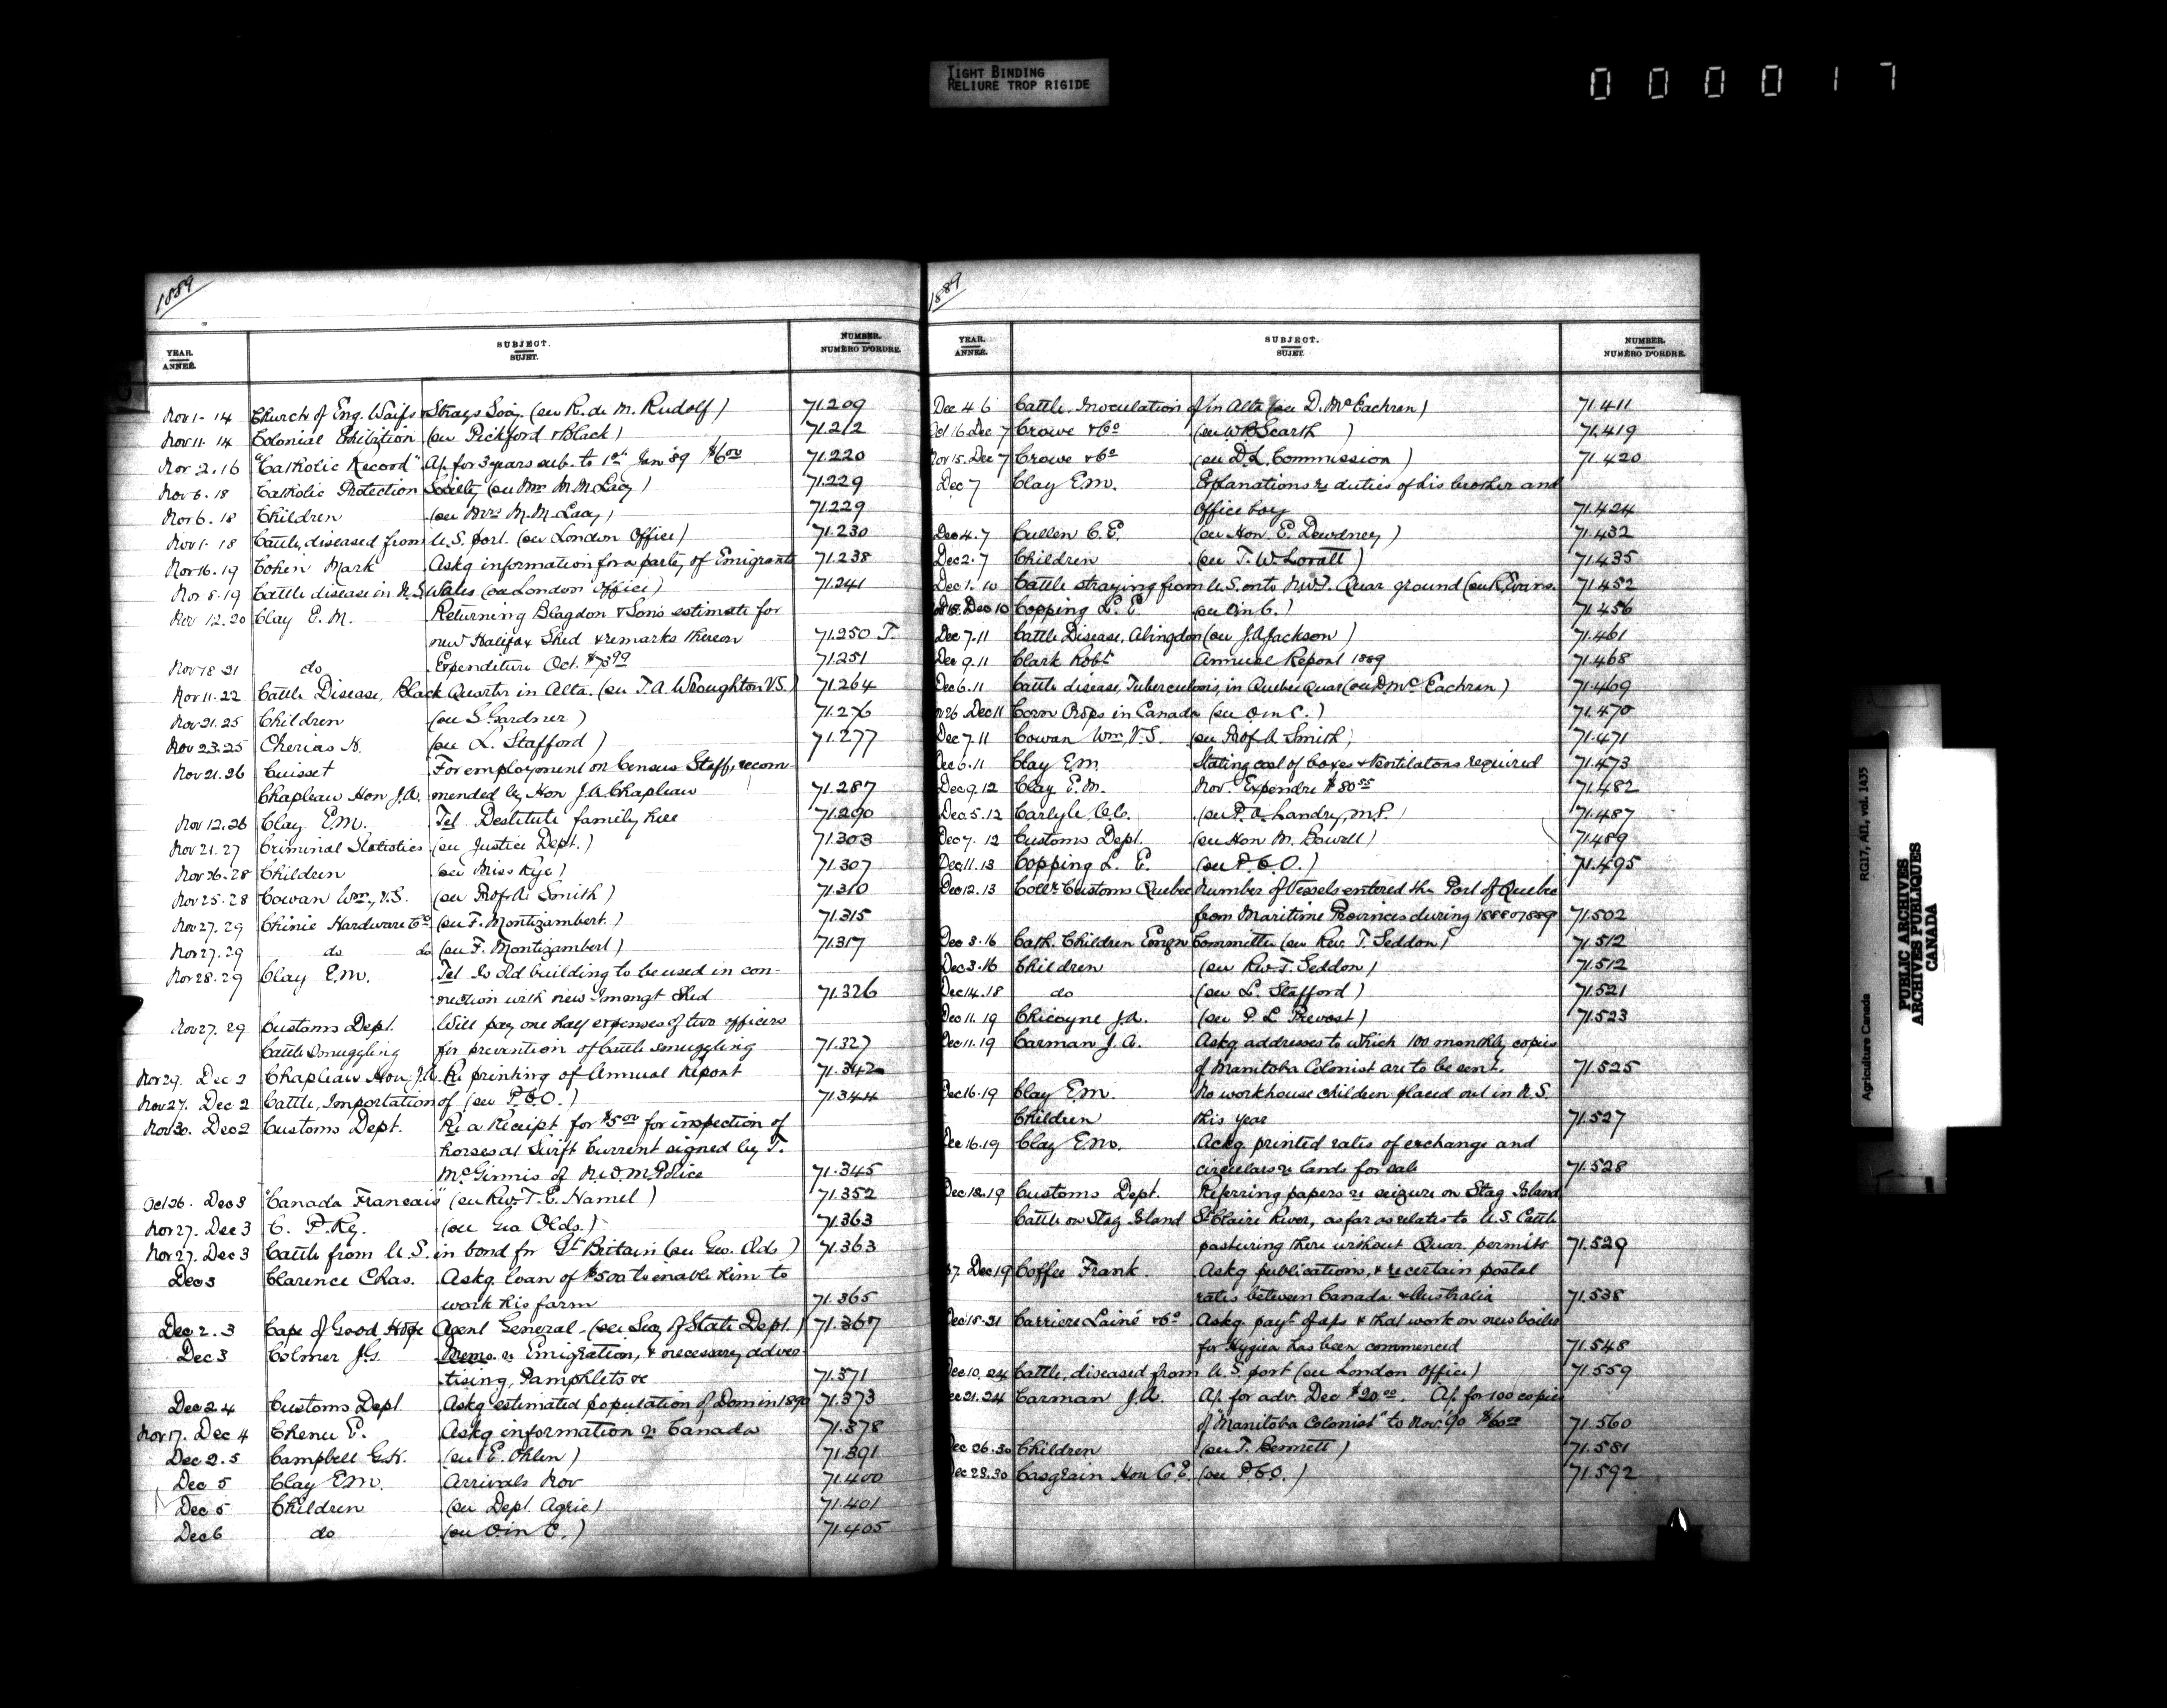 TIGHT BINDING
RELIURE TROP RIGIDE
000017
1889
YEAR. ANNÉE. SUBJECT. SUJET. NUMBER. NUMÉRO D'ORDRE.
Nov 1-14 Church of Eng. Waifs & Strays Socy. (see R. de M. Rudolf) 71.209
Nov 11-14 Colonial Exhibition (see Pickford & Black) 71.212
Nov 2.16 "Catholic Record" Ap. for 3 years sub. to 1st Jan '89 $6.00 71.220
Nov 6.18 Catholic Protection Society (see Mrs M.M. Lacy) 71.229
Nov 6.18 Children (see Mrs M.M. Lacy) 71.229
Nov 1-18 Cattle, diseased from U.S. port. (see London Office) 71.230
Nov 16.19 Cohen Mark Askg information for a party of Emigrants 71.238
Nov 8.19 Cattle disease in N.S. Wales (see London Office) 71.241
Nov 12.20 Clay E.M. Returning Blagdon & Sons estimate for
new Halifax Shed & remarks thereon 71.250 T.
Nov 18 21 do Expenditure Oct. 71.251
Nov 11-22 Cattle Disease, Black Quarter in Alta. (see T.A. Wroughton V.S.) 71.264
Nov 21.25 Children (see S. Gardner) 71.276
Nov 23.25 Cherias K. (see L. Stafford) 71.277
Nov 21.26 Cuisset For employment on Census Staff, recom-
Chapleau Hon J.A. mended by Hon J.A. Chapleau 71.287
Nov 12.26 Clay E.M. Tel Destitute family here 71.290
Nov 21.27 Criminal Statistics (see Justice Dept.) 71.303
Nov 26.28 Children (see Miss Rye) 71.307
Nov 25-28 Cowan Wm., V.S. (see Prof. A. Smith) 71.310
Nov 27.29 Chinic Hardware Co (see F. Montizambert.) 71.315
Nov 27.29 do do (see F. Montizambert) 71.317
Nov 28.29 Clay E.M. Tel Is old building to be used in con-
nection with new Immgt Shed 71.326
Nov 27.29 Customs Dept. Will pay one half expenses of two officers
Cattle Smuggling for prevention of Cattle smuggling 71.327
Nov 29. Dec 2 Chapleau Hon. J.A. Re printing of Annual Report 71.342
Nov 27. Dec 2 Cattle, Importation of (see P.C.O.) 71.344
Nov 30. Dec 2 Customs Dept. Re a Receipt for $5.00 for inspection of
horses at Swift Current signed by T.
McGinnis of N.W.M. Police 71.345
Oct 26. Dec 3 "Canada Francais" (see Rev. T.E. Hamel) 71.352
Nov 27. Dec 3 C. P. Ry. (see Geo Olds.) 71.363
Nov 27. Dec 3 Cattle from U.S. in bond for Gt Britain (see Geo. Olds) 71.363
Dec 3 Clarence Chas. Askg. loan of $500 to enable him to
work his farm 71.365
Dec 2.3 Cape of Good Hope Agent General. (see Secy of State Dept.) 71.367
Dec 3 Colmer J.G. Memo. re Emigration, & necessary adver-
tising, Pamphlets &c 71.371
Dec 2.4 Customs Dept Askg estimated population of Dom in 1890 71.373
Nov 17. Dec 4 Chenu E. Askg information re Canada 71.378
Dec 2.5 Campbell G.K. (see E. Ohlen) 71.391
Dec 5 Clay E.M. Arrivals Nov 71.400
Dec 5 Children (see Dept. Agric) 71.401
Dec 6 do (see O in C.) 71.405
1889
YEAR. ANNÉE. SUBJECT. SUJET. NUMBER. NUMÉRO D'ORDRE.
Dec 4 6 Cattle, Inoculation of in Alta (see D. McEachran) 71.411
Oct 16. Dec 7 Crowe & Co (see W.B. Scarth) 71.419
Nov 15. Dec 7 Crowe & Co (see D.L. Commission) 71.420
Dec 7 Clay E.M. Explanations re duties of his brother and
office boy 71.424
Dec 4.7 Cullen C.E. (see Hon. E. Dewdney) 71.432
Dec 2.7 Children (see T.W. Lovatt) 71.435
Dec 1.10 Cattle straying from U.S. onto N.W.T. Quar ground (see R. Evans. 71.452
Dec 10 Copping L. E. (see O in C.) 71.456
Dec 7.11 Cattle Disease, Abingdon (see J.A. Jackson) 71.461
Dec 9.11 Clark Robt Annual Report 1889 71.468
Dec 6.11 Cattle disease, Tuberculosis, in Quebec Quar (see D. McEachran) 71.469
Nov 26 Dec 11 Corn Crops in Canada (see O in C.) 71.470
Dec 7.11 Cowan Wm, V.S. (see Prof A. Smith) 71.471
Dec 6.11 Clay E.M. Stating cost of boxes & Ventilators required 71.473
Dec 9.12 Clay E.M. Nov. Expendre $80.55 71.482
Dec 5.12 Carlyle (see P.A. Landry, M.P.) 71.487
Dec 7.12 Customs Dept. (see Hon M. Bowell) 71.489
Dec 11.13 Copping L. E. (see P.C.O.) 71.495
Dec 12.13 Collr Customs Quebec Number of Vessels entered the Port of Quebec
from Maritime Provinces during 1888 & 1889 71.502
Dec 3.16 Cath. Children Emgn Committee (see Rev. T. Seddon) 71.512
Dec 3.16 Children (see Rev. T. Seddon) 71.512
Dec 14.18 do (see L. Stafford) 71.521
Dec 11.19 Chicoyne J.A. (see P. L. Prevost) 71.523
Dec 11.19 Carman J. A. Askg addresses to which 100 monthly copies
of Manitoba Colonist are to be sent. 71.525
Dec 16.19 Clay E.M. No workhouse children placed out in N.S.
Children this year 71.527
Dec 16.19 Clay E.M. Ackg printed rates of exchange and
circulars re lands for sale 71.528
Dec 18.19 Customs Dept. Referring papers re seizure on Stag Island
Cattle on Stag Island St Claire River, as far as relates to U.S. Cattle
pasturing there without Quar. permits 71.529
Dec 19 Coffee Frank. Askg publications, & re certain postal
rates between Canada & Australia 71.538
Dec 18.21 Carriere Lainé & Co Askg. payt of a/ps & that work on new boiler
for Hygiea has been commenced 71.548
Dec 10.24 Cattle, diseased from U.S. port (see London Office) 71.559
Dec 21.24 Carman J.A. Ap. for adv. Dec $20.00. Ap. for 100 copies
of "Manitoba Colonist" to Nov. '90 $60.00 71.560
Dec 26.30 Children (see T. Bennett) 71.581
Dec 28.30 Casgrain Hon C.E. (see P.C.O.) 71.592
Agriculture Canada RG17, AII, vol. 1435
PUBLIC ARCHIVES
ARCHIVES PUBLIQUES
CANADA